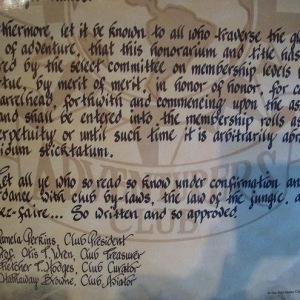 thermore, let it be known to all who traverse the gl
of adventure, that this honorarium and title has
red by the select committee on membership levels
rtue, by merit of merit, in honor of honor, for ca
arrelhead, forthwith and commencing upon the as
and shall be entered into the membership rolls as
erpetuity or until such time it is arbitrarily abr
idium skicktatum.
Let all ye who so read so know under confirmation an
dance with club by-laws, the law of the jungle, a
ez-faire... So written and so approved.
Pamela Perkins, Club President
Prof. Otis T. Wren, Club Treasurer
Fletcher T. Hodges, Club Curator
Hathaway Browne, Club Aviator
ADVENTURERS
CLUB